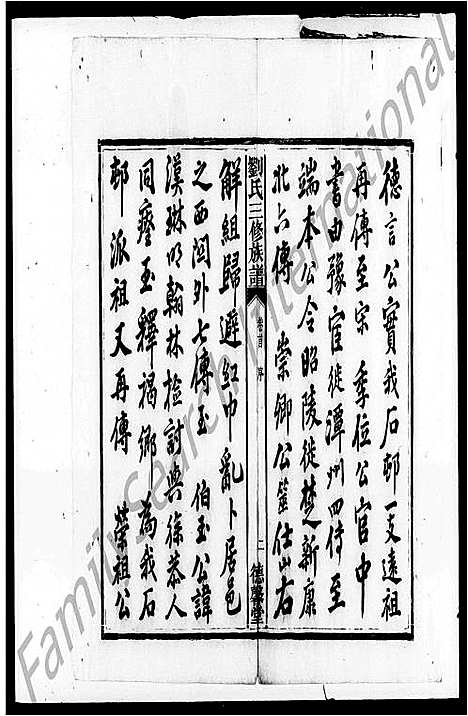 德言公實我石邨一支遠祖
再傳至宗 季位公官中
書由豫宦徙潭州四傳至
端本公令昭陵徙楚新康
北六傳 崇卿公筮仕山右
劉氏三修族譜
卷首 序
二 德馨堂
解組歸避紅巾亂卜居邑
之西閭外七傳至 伯玉公諱
漢琳明翰林檢討與徐恭人
同瘞玉釋褐鄉 為我石
邨派祖又再傳 榮祖公
FamilySearch International